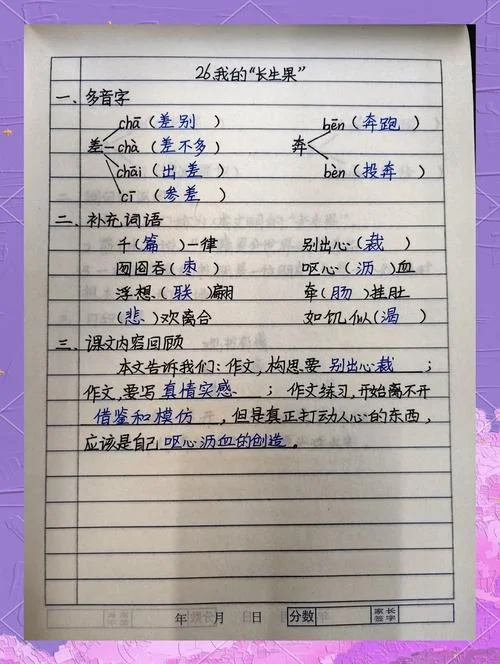 26.我的“长生果”
一、多音字
差 chā（差别） chà（差不多） chāi（出差） cī（参差）
奔 bēn（奔跑） bèn（投奔）
二、补充词语
千（篇）一律 别出心（裁）
囫囵吞（枣） 呕心（沥）血
浮想（联）翩 牵（肠）挂肚
（悲）欢离合 如饥似（渴）
三、课文内容回顾
本文告诉我们：作文，构思要 别出心裁 ；
作文，要写 真情实感 ； 作文练习，开始离不开
借鉴和模仿 ，但是真正打动人心的东西，
应该是自己 呕心沥血的创造 。
年 月 日 分数 家长签字